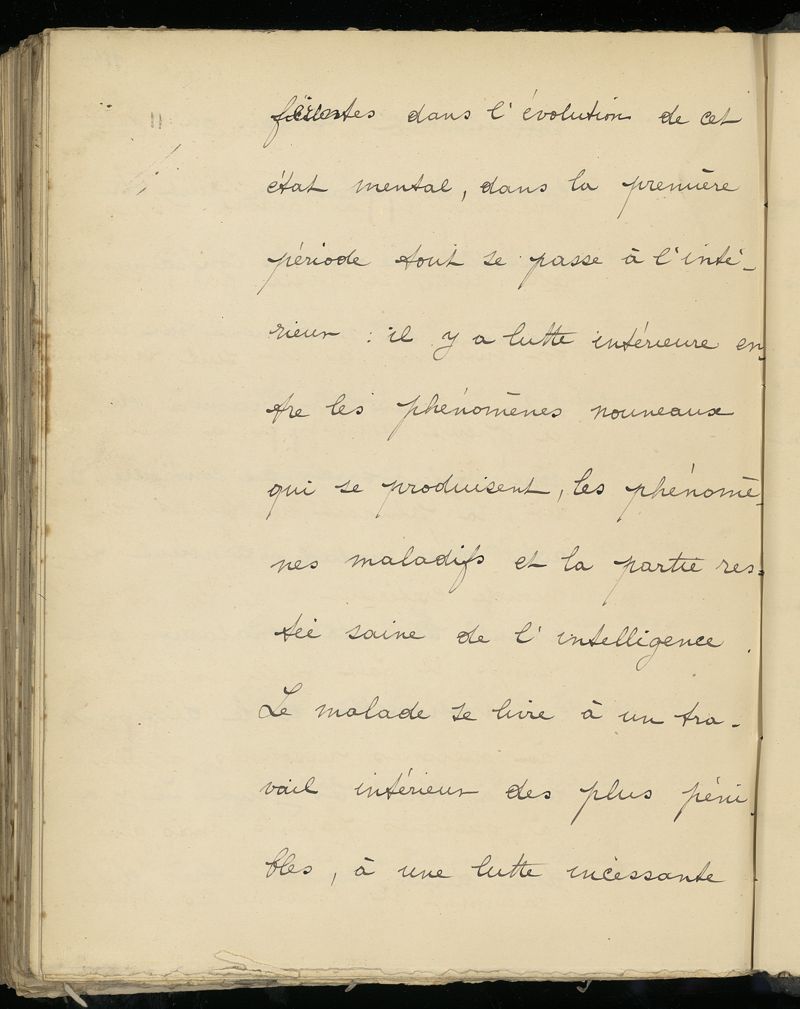 férentes dans l'évolution de cet
état mental, dans la première
période tout se passe à l'inté-
rieur : il y a lutte intérieure en-
tre les phénomènes nouveaux
qui se produisent, les phénomè-
nes maladifs et la partie res-
tée saine de l'intelligence.
Le malade se livre à un tra-
vail intérieur des plus péni
bles, à une lutte incessante